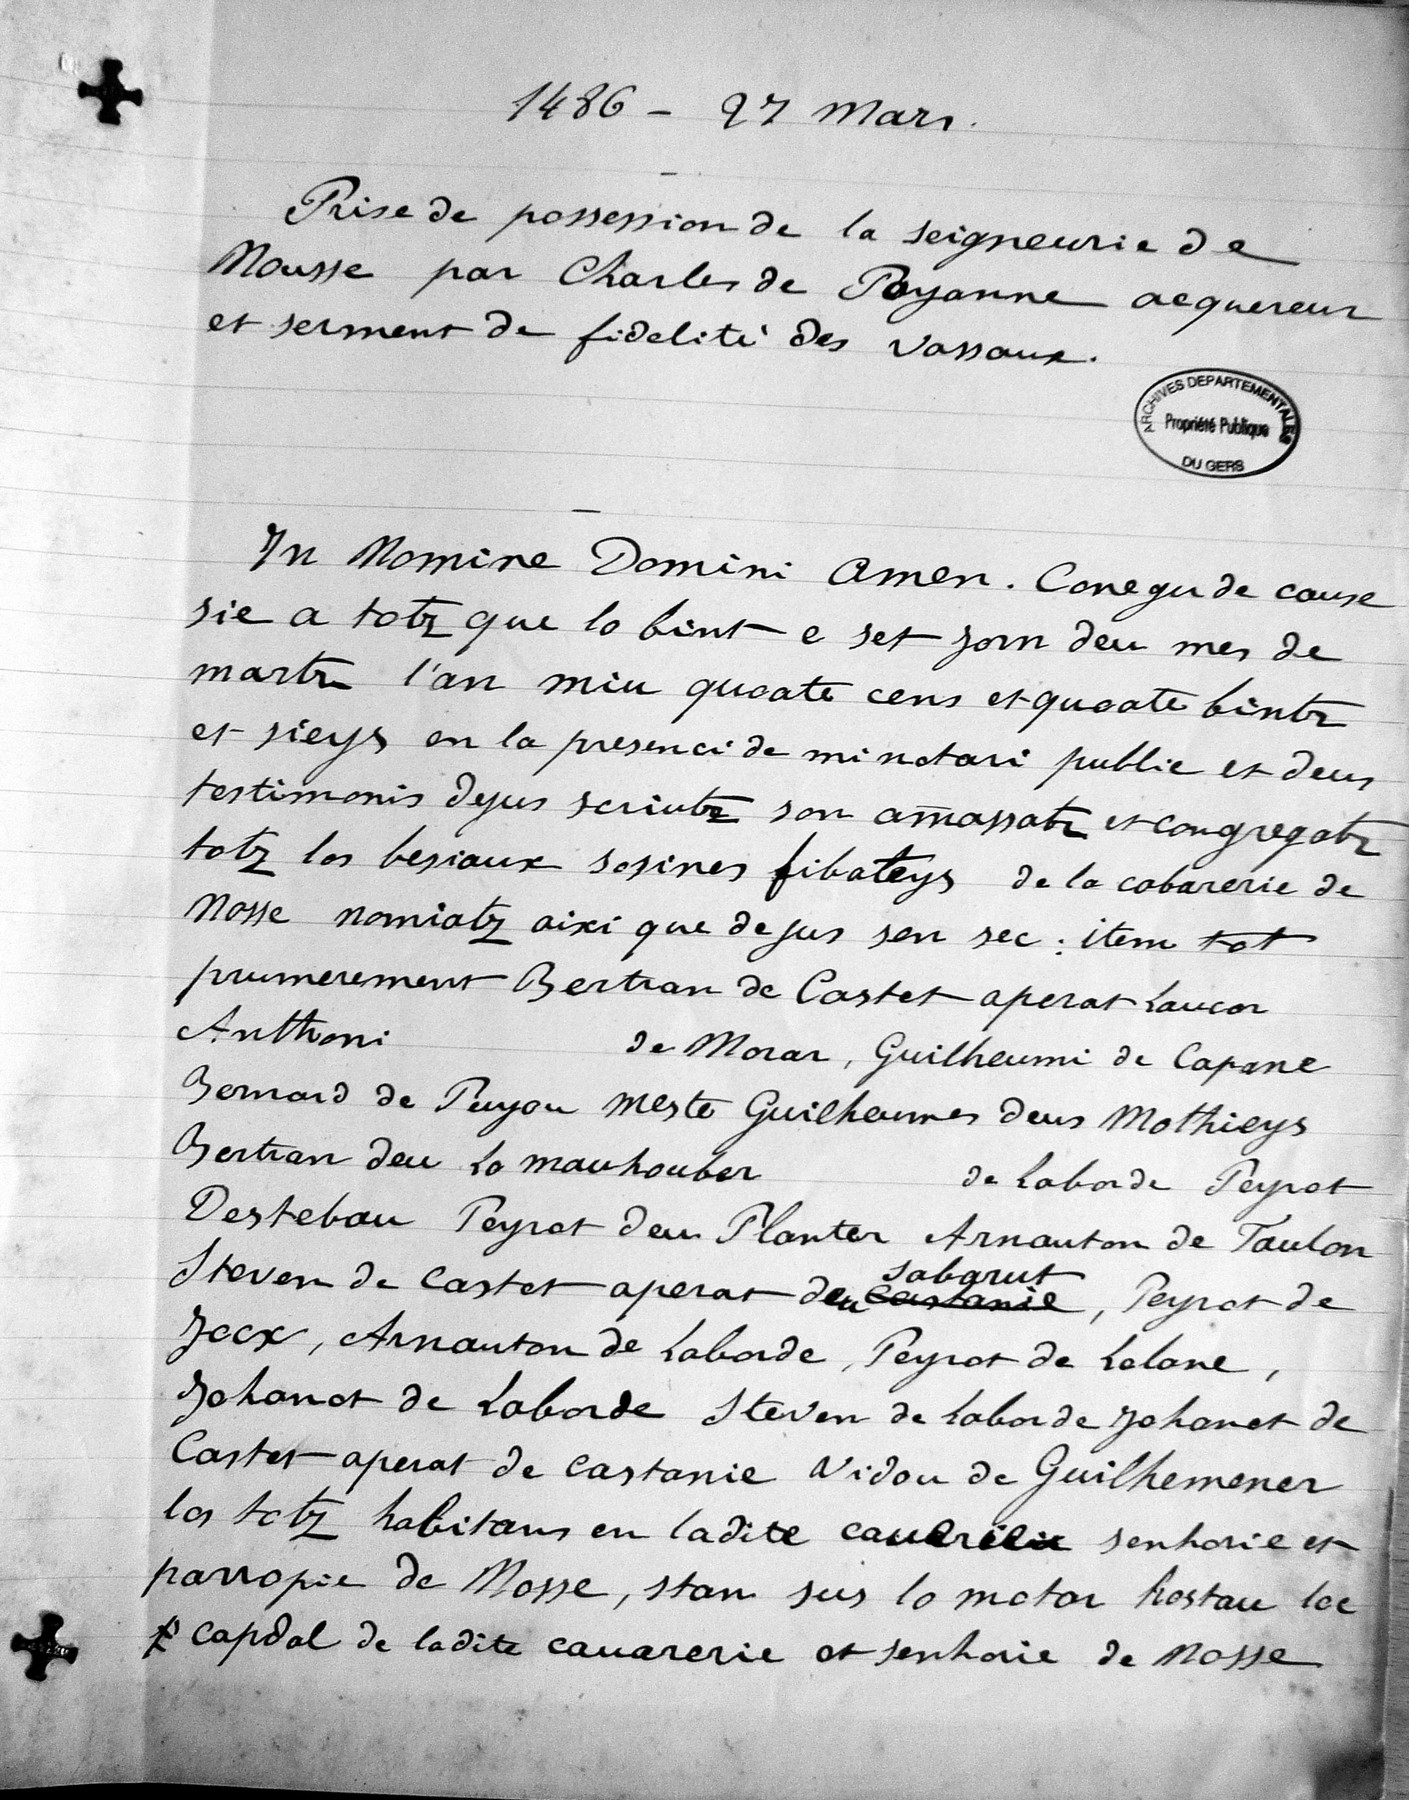 1486 - 27 Mars.
Prise de possession de la seigneurie de
Mousse par Charles de Poyanne acquereur
et serment de fidelité des vassaux.
ARCHIVES DEPARTEMENTALES
Propriété Publique
DU GERS
In Nomine Domini Amen. Conegude cause
sie a totz que lo bint e set jorn deu mes de
martz l'an miu quoate cens et quoate bintz
et sieys en la presenci de mi notari public et deus
testimonis dejus scriutz son amassatz et congregatz
totz los besiaux sosmes fibateys de la cabarerie de
Mosse nomiatz aixi que dejus sen sec : item tot
prumerement Bertran de Castet aperat Laucor
Anthoni de Moras, Guilheumi de Capane
Bernard de Puyou Meste Guilheumes deus Mothieys
Bertran deu Lo mauhouber de Laborde Peyrot
Destebau Peyrot deu Planter Arnauton de Taulon
Steven de Castet aperat deu sabarut castanie, Peyrot de
Jocx, Arnauton de Laborde, Peyrot de Lalane,
Johanot de Laborde Steven de Laborde Johanet de
Castet aperat de Castanie Vidou de Guilhemener
los totz habitans en ladite senhorie et
parropie de Mosse, stan sus lo motar hostau loc
capdal de ladite cauarerie et senhorie de Mosse